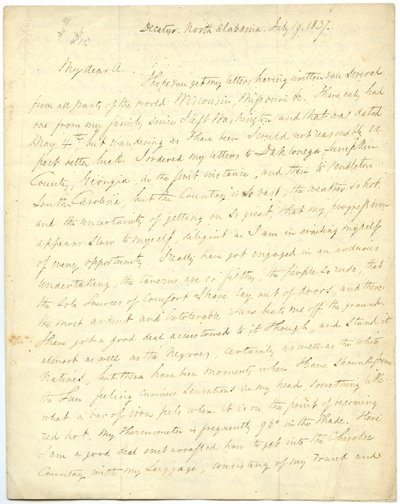 Decatur. North Alabama. July 19. 1837.
My dear A
I hope you get my letters, having written you several
from all parts of the world Wisconsin, Missouri &c. I have only had
one from my family since I left Washington and that was dated
May 4th but wandering as I have been I could not reasonably ex
pect better luck. I ordered my letters to Dahlonega Lumpkin
County, Georgia in the first instance, and then to Pendleton
South Carolina, but the Country is so vast, the weather so hot
and the uncertainty of getting on so great, that my progress even
appears slow to myself, diligent as I am in availing myself
of every opportunity. I really have got engaged in an arduous
undertaking, the taverns are so filthy, the people so rude, that
the sole sources of comfort I have lay out of doors, and there
the most ardent and intolerable Sun beats me off the ground.
I have got a good deal accustomed to it though, and stand it
almost as well as the Negroes, certainly as well as the white
Natives, but there have been moments when I have shrunk from
the Sun, feeling curious sensations in my head something like
what a bar of iron feels when it is on the point of becoming
red hot. My Thermometer is frequently 98° in the Shade. Here
I am a good deal embarrassed how to get into the Cherokee
Country with my Luggage, consisting of my Trunk and